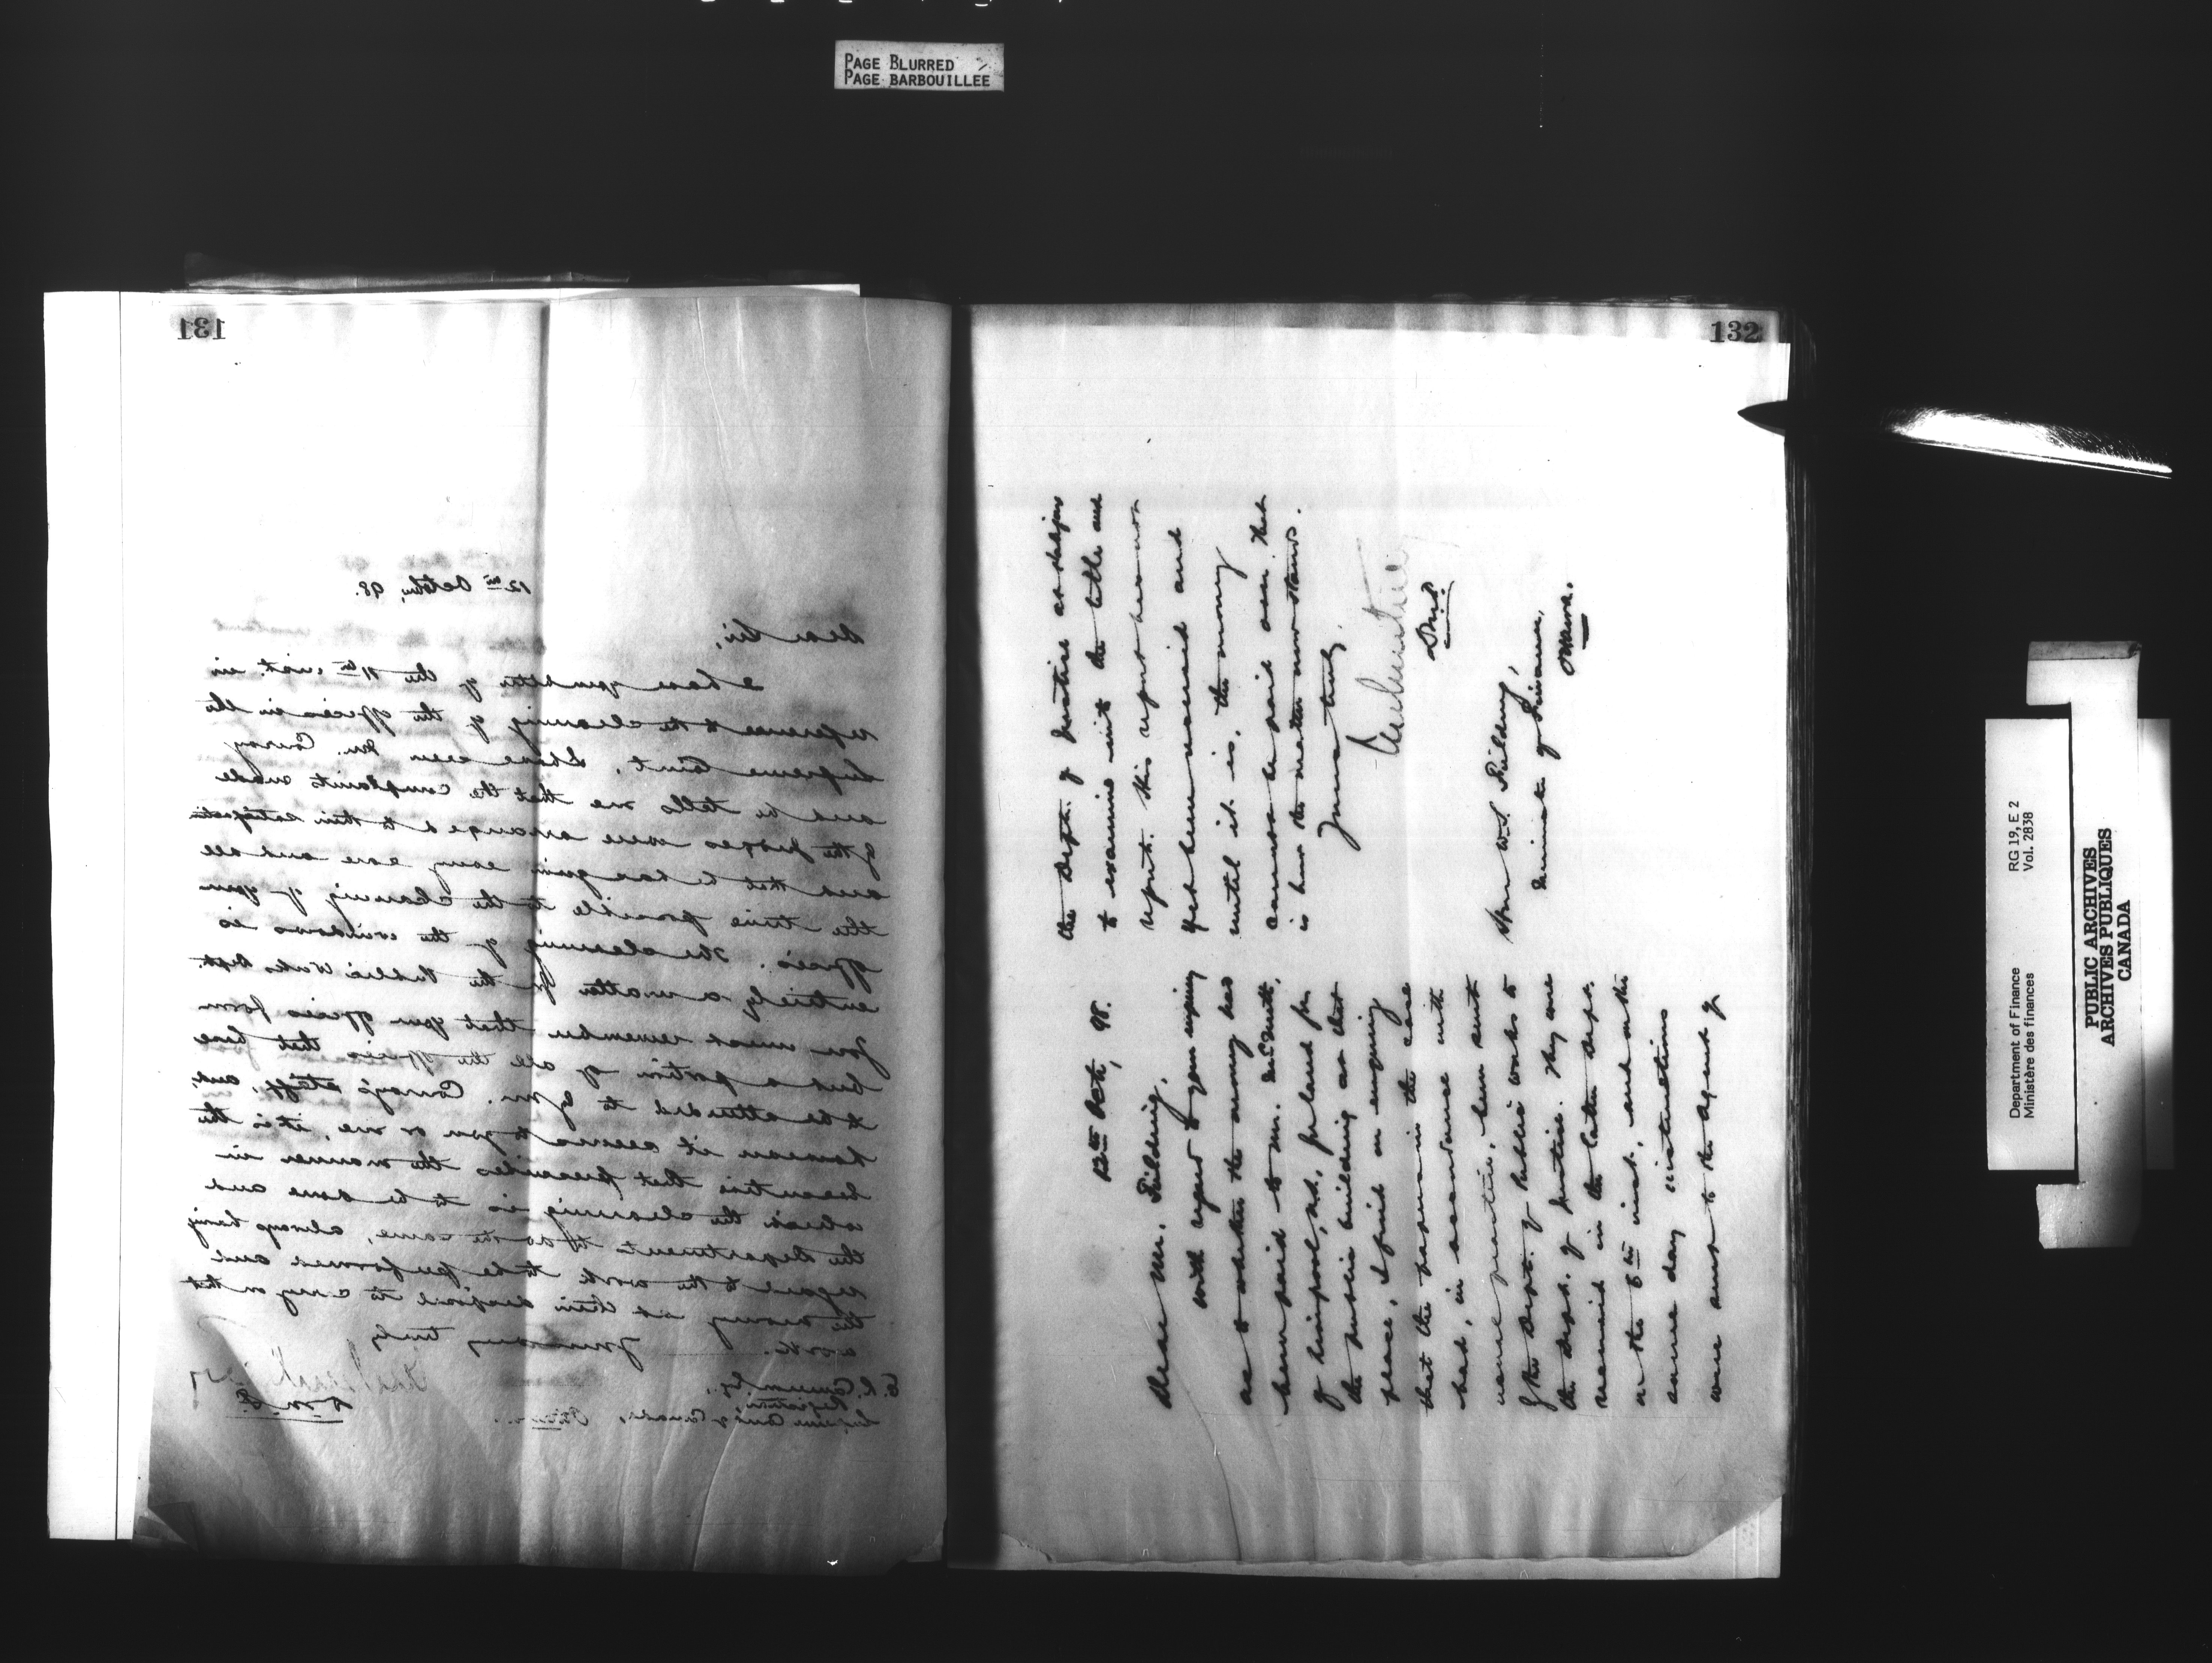 PAGE BLURRED
PAGE BARBOUILLEE
131
12th October, 98.
Dear Sir,
I have your letter of the 11th inst. in
reference to the cleaning of the offices in the
Supreme Court. I have seen Mr. Conroy
and he tells me that the complaints made
by the judges were arranged to their satisfaction
and that he has given every care and all
the time possible to the cleaning of your
offices. The cleaning of the windows is
entirely a matter for the Public Works Dept.
You must remember that your offices form
but a portion of all the offices that have
to be attended to by Mr. Conroy's staff, and,
however it seems to you or me, it is the
Executive that provides the manner in
which the cleaning is to be done and
the department to do the same, always having
regard to the work to be performed and
the money at their disposal to carry on that
work.
Yours very truly
D.M.F.
Registrar,
Supreme Court of Canada, Ottawa.
132
12th Oct, 98.
Dear Mr. Fielding,
With regard to your inquiry
as to whether the money has
been paid to Mr. McNutt,
of Liverpool, N.S. for land for
the public building at that
place, I find on enquiry
that the papers in the case
had, in accordance with
usual practice, been sent
by the Dept. of Public Works to
the Dept. of Justice. They were
received in the latter Dept.
on the 6th inst., and on the
same day instructions
were sent to the agent of
the Dept. of Justice at
to examine into the title and
report. His report has not
yet been received and
until it is, the money
cannot be paid over. That
is how the matter now stands.
Yours truly,
D.M.F.
Hon W.S. Fielding,
Minister of Finance,
Ottawa.
Department of Finance
Ministère des finances
RG 19, E 2
Vol. 2838
PUBLIC ARCHIVES
ARCHIVES PUBLIQUES
CANADA